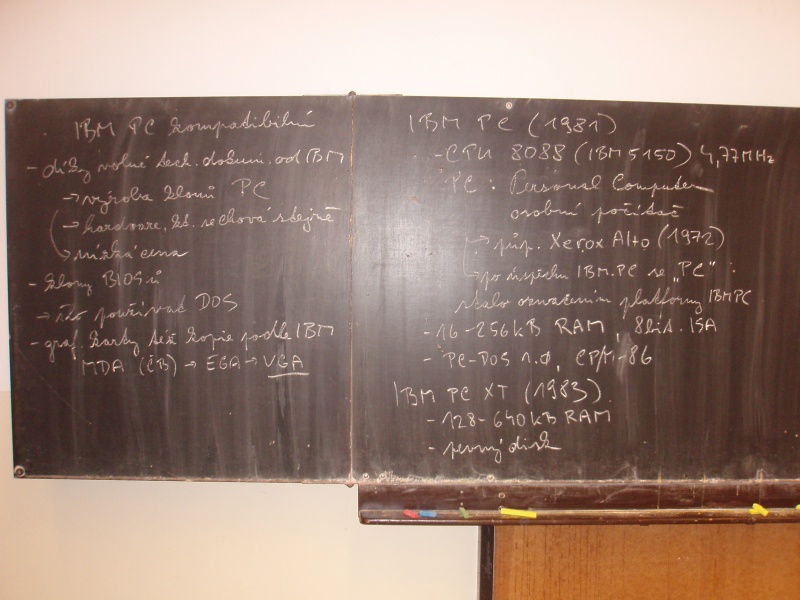 IBM PC kompatibilní
- díky volné tech. dokum. od IBM
→ výroba klonů PC
→ hardware, kt. se chová stejně
→ nízká cena
- klony BIOSů
→ šlo používat DOS
- graf. karty též kopie podle IBM
MDA (ČB) → EGA → VGA
IBM PC (1981)
- CPU 8088 (IBM 5150) 4,77MHz
PC: Personal Computer
osobní počítač
→ pův. Xerox Alto (1972)
→ po úspěchu IBM PC se "PC"
stalo označením platformy IBM PC
- 16-256kB RAM, 8bit. ISA
- PC-DOS 1.0, CP/M-86
IBM PC XT (1983)
- 128-640kB RAM
- pevný disk